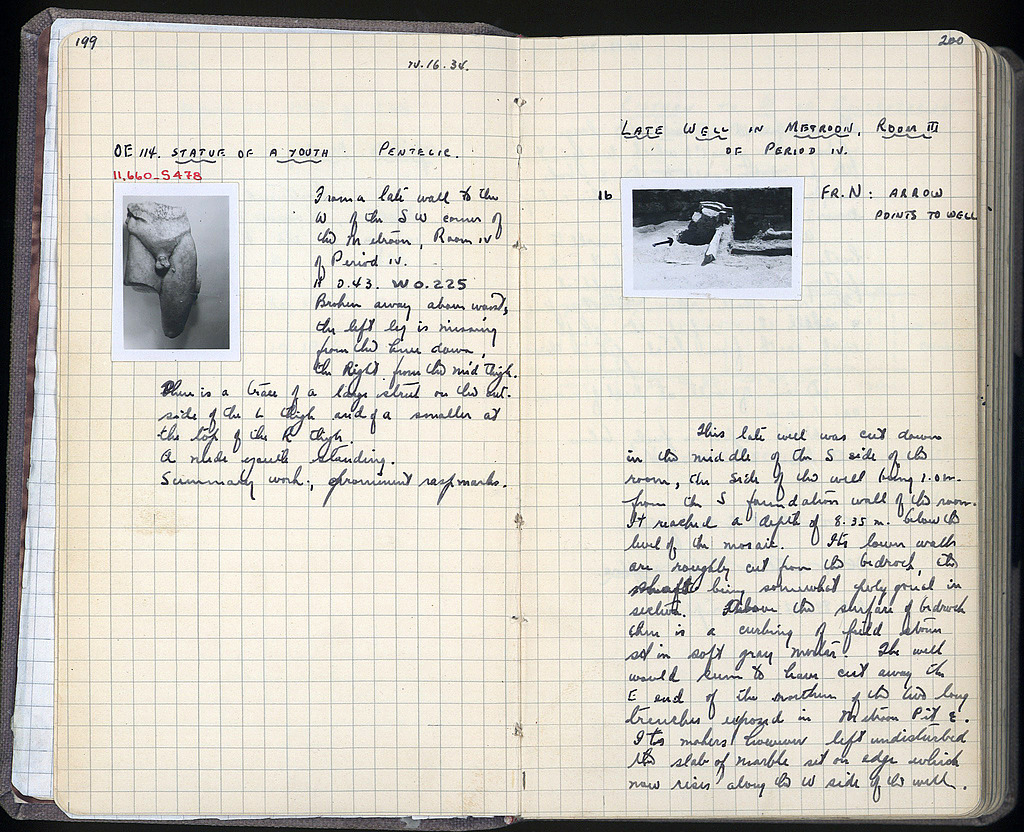 199
IV.16.34.
OE 114. STATUE OF A YOUTH PENTELIC.
11,660-S478
From a late wall to the
W of the SW corner of
the Metroon, Room IV
of Period IV.
H 0.43. W 0.225
Broken away above waist,
the left leg is missing
from the knee down,
the Right from the mid thigh.
There is a trace of a large strut on the out-
side of the L thigh and of a smaller at
the top of the R thigh.
A nude youth standing.
Summary work, prominent rasp marks.
200
LATE WELL IN METROON, ROOM III
OF PERIOD IV.
16
FR. N: ARROW
POINTS TO WELL
This late well was cut down
in the middle of the S side of the
room, the side of the well being 1.0 m.
from the S foundation wall of the room.
It reached a depth of 8.35 m. below the
level of the mosaic. Its lower walls
are roughly cut from the bedrock, the
shaft being somewhat polygonal in
section. Above the surface of bedrock
there is a curbing of field stones
set in soft gray mortar. The well
would seem to have cut away the
E end of the northern of the two long
trenches exposed in Metroon Pit E.
Its makers however left undisturbed
the slab of marble set on edge which
now rises along the W side of the well.